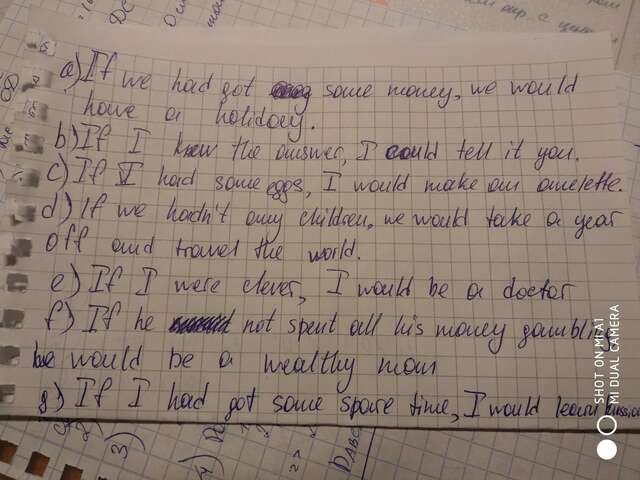 a) If we had got some money, we would
have a holidoey.
b) If I knew the answer, I could tell it you.
c) If I had some eggs, I would make an omelette.
d) If we hadn't any children, we would take a year
off and travel the world.
e) If I were clever, I would be a doctor
f) If he not spent all his money gambling
he would be a wealthy man
g) If I had got some spare time, I would learn
3)
4)
SHOT ON MI A1
MI DUAL CAMERA